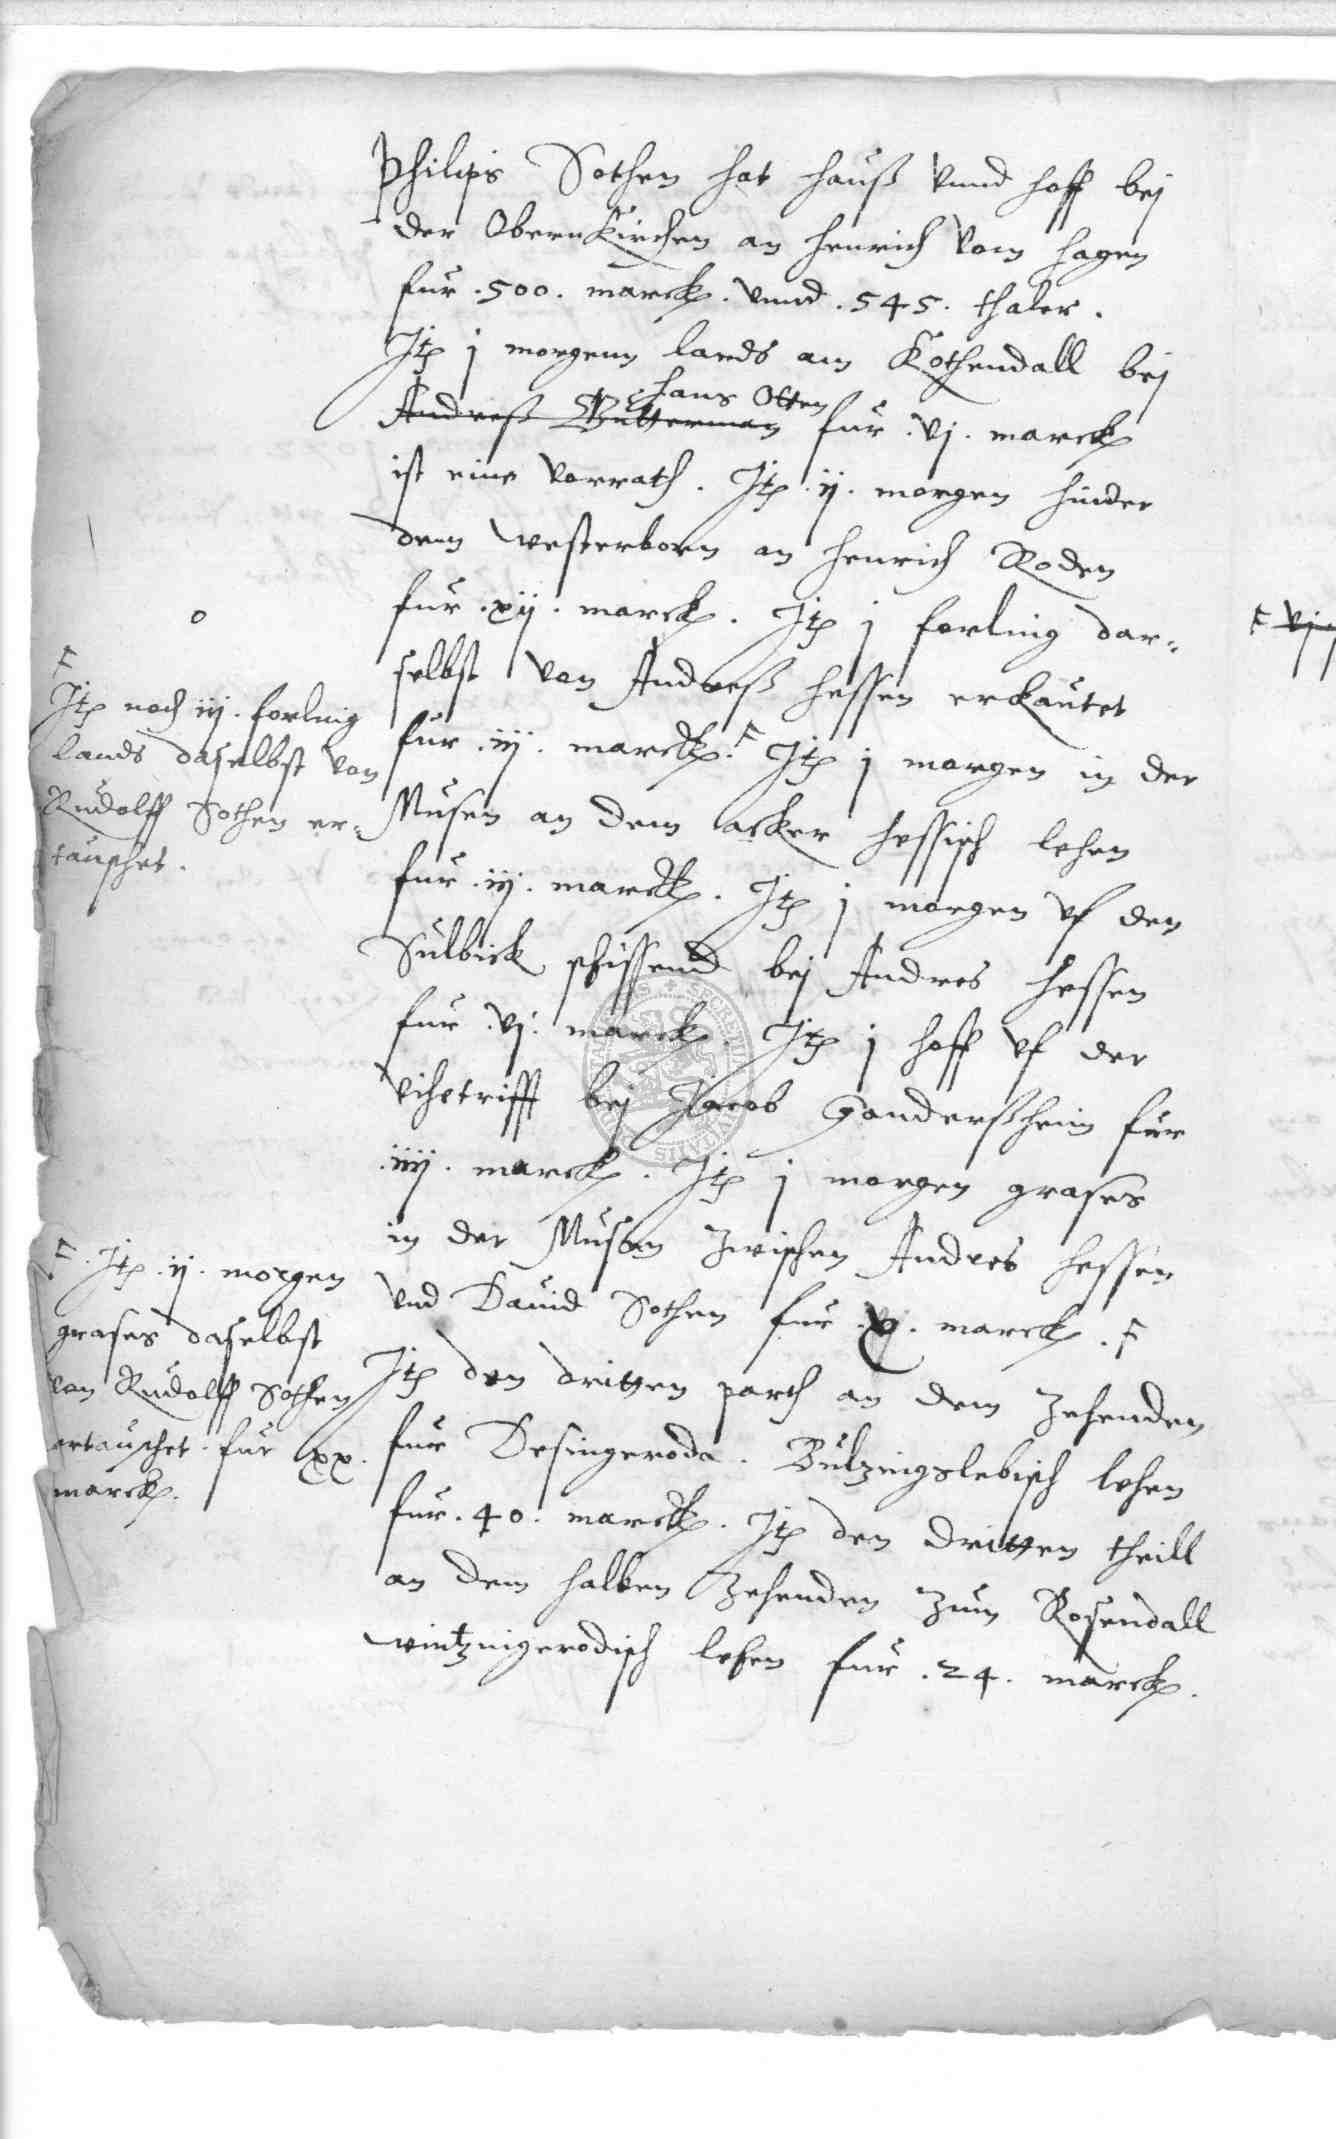 Philips Sothen hat hauß vnnd hoff bej
der Obernkirchen an Henrich vom Hagen
fur .500. marck. vnnd .545. thaler.
Itē j morgenn lands am Kothendall bej
Hans Otten
Andreß Wütterman fur .vj. marck
ist eine vorrath. Itē .ij. morgen hinder
dem westerborn an Henrich Roden
fur .xij. marck. Itē j forling dar-
selbst von Andreß Hessen erkautet
fur .iij. marck. F Itē j morgen in der
Musen an dem acker Hessisch lehen
fur .iij. marck. Itē j morgen vf den
Sulbick schissend bej Andres Hessen
fur .vj. marck. Itē j hoff vf der
vihetrifft bej Jacob Ganderßheim fur
.iiij. marck. Itē j morgen grases
in der Musen zwischen Andres Hessen
vnd Dauid Sothen fur .xj. marck. F
Itē den dritten parth an dem zehenden
fur Desingeroda. Bultzingslebisch lehen
fur .40. marck. Itē den dritten theill
an dem halben zehenden zum Rosendall
wintzingerodisch lehen fur .24. marck.
F
Itē noch iij. forling
lands daselbst von
Rudolff Sothen er-
tauschet.
F. Itē .ij. morgen
grases daselbst
von Rudolff Sothen
ertauschet fur xx.
marck.
F vj